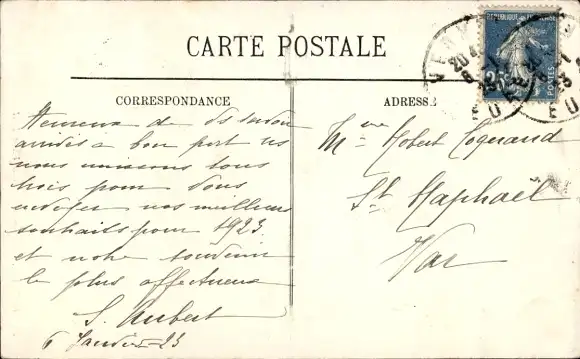 CARTE POSTALE
RÉPUBLIQUE FRANÇAISE
25
POSTES
CORRESPONDANCE
ADRESSE
Heureux de vs savoir
arrivés à bon port ns
nous unissons tous
trois pour vous
nos meilleurs
souhaits pour 1923
et notre souvenir
le plus affectueux
S. Aubert
6 Janvier 23
Mme Robert
St Raphael
Var